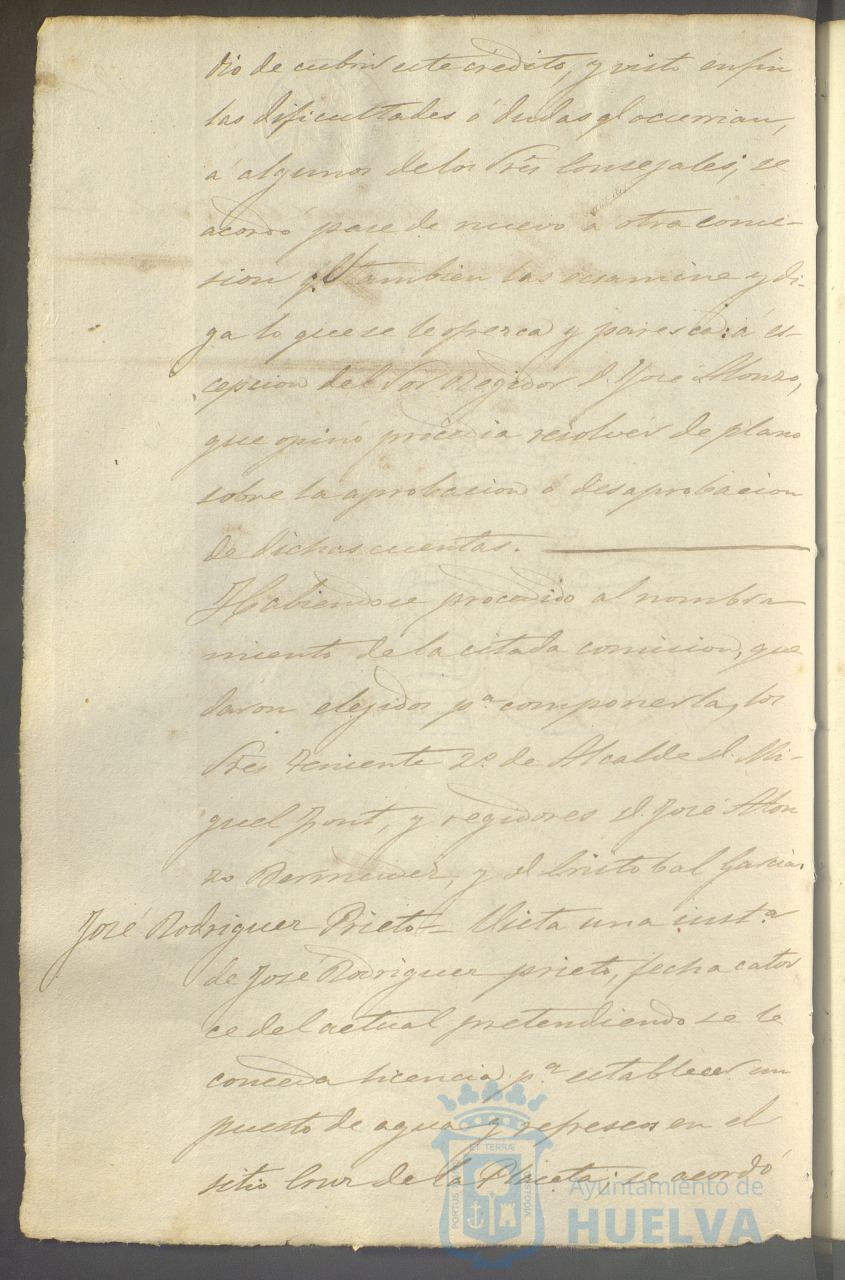 dio de cubrir este crédito, y visto enfin
las dificultades ó dudas q.l ocurrian,
á algunos de los Sres Consejales; se
acordó pase de nuevo á otra comi-
sion q.e tambien las esamine y di-
ga lo que se le ofresca y paresca: á es-
cepcion del Sor Regidor D. José Alonzo,
que opinó procedia resolver de plano
sobre la aprobacion ó desaprobacion
de dichas cuentas.
Habiendose procedido al nombra
miento de la citada comision, que
daron elejidos p.a componerla, los
Sres Teniente 2.o de Alcalde D. Mi-
guel Font, y regidores D. José Alon
zo Bermudez, y D. Cristobal Garcia.
José Rodriguez Prieto= Vista una inst.a
de José Rodriguez prieto, fecha cator
ce del actual pretendiendo se le
conceda licencia p.a establecer un
puesto de agua y refrescos en el
sitio Cruz de la Placeta; se acordó
PORTUS ET TERRÆ CUSTODIA
Ayuntamiento de
HUELVA